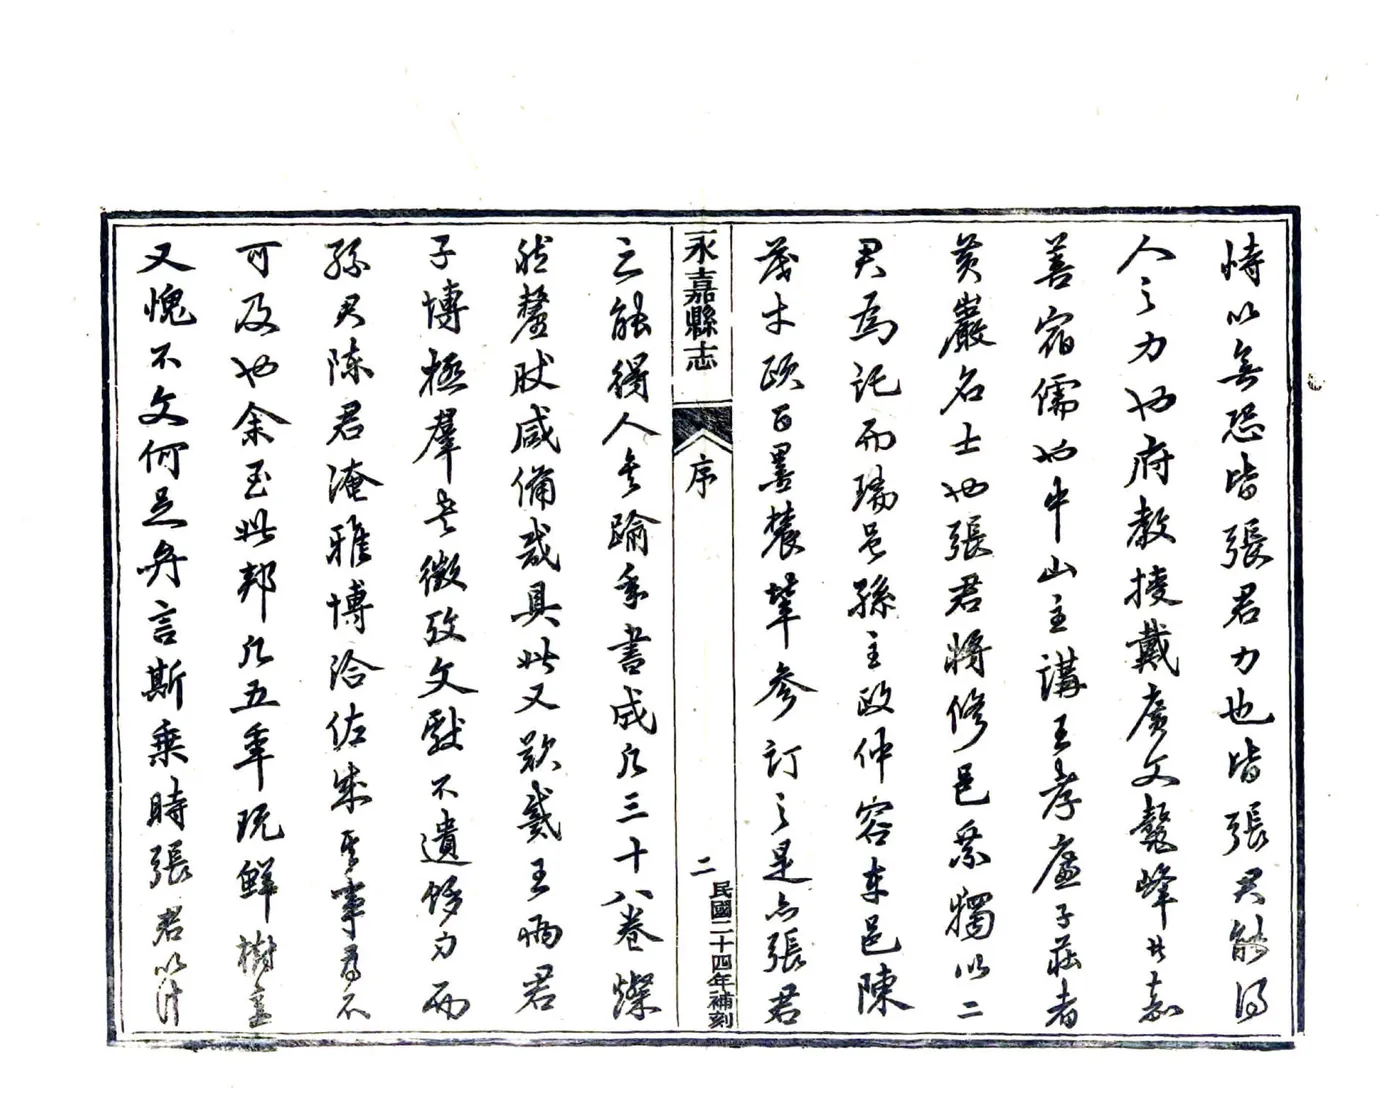 恃以無恐皆張君力也皆張君能得
人之力也府教授戴廣文鼇峰嘉
善宿儒也中山主講王孝廉子莊者
黃巖名士也張君將修邑乘獨以二
君為託而瑞邑孫主政仲容本邑陳
茂才墨農輩參訂之是亦張君
永嘉縣志
序
二
民國二十四年補刻
之能得人矣踰年書成凡三十八卷燦
然釐肰咸備哉具此又歎戴王兩君
子博極羣書徵攷文獻不遺餘力而
孫君陳君淹雅博洽佐成其事為不
可及也余至此邦凡五年既鮮樹立
又愧不文何足弁言斯乘時張君以